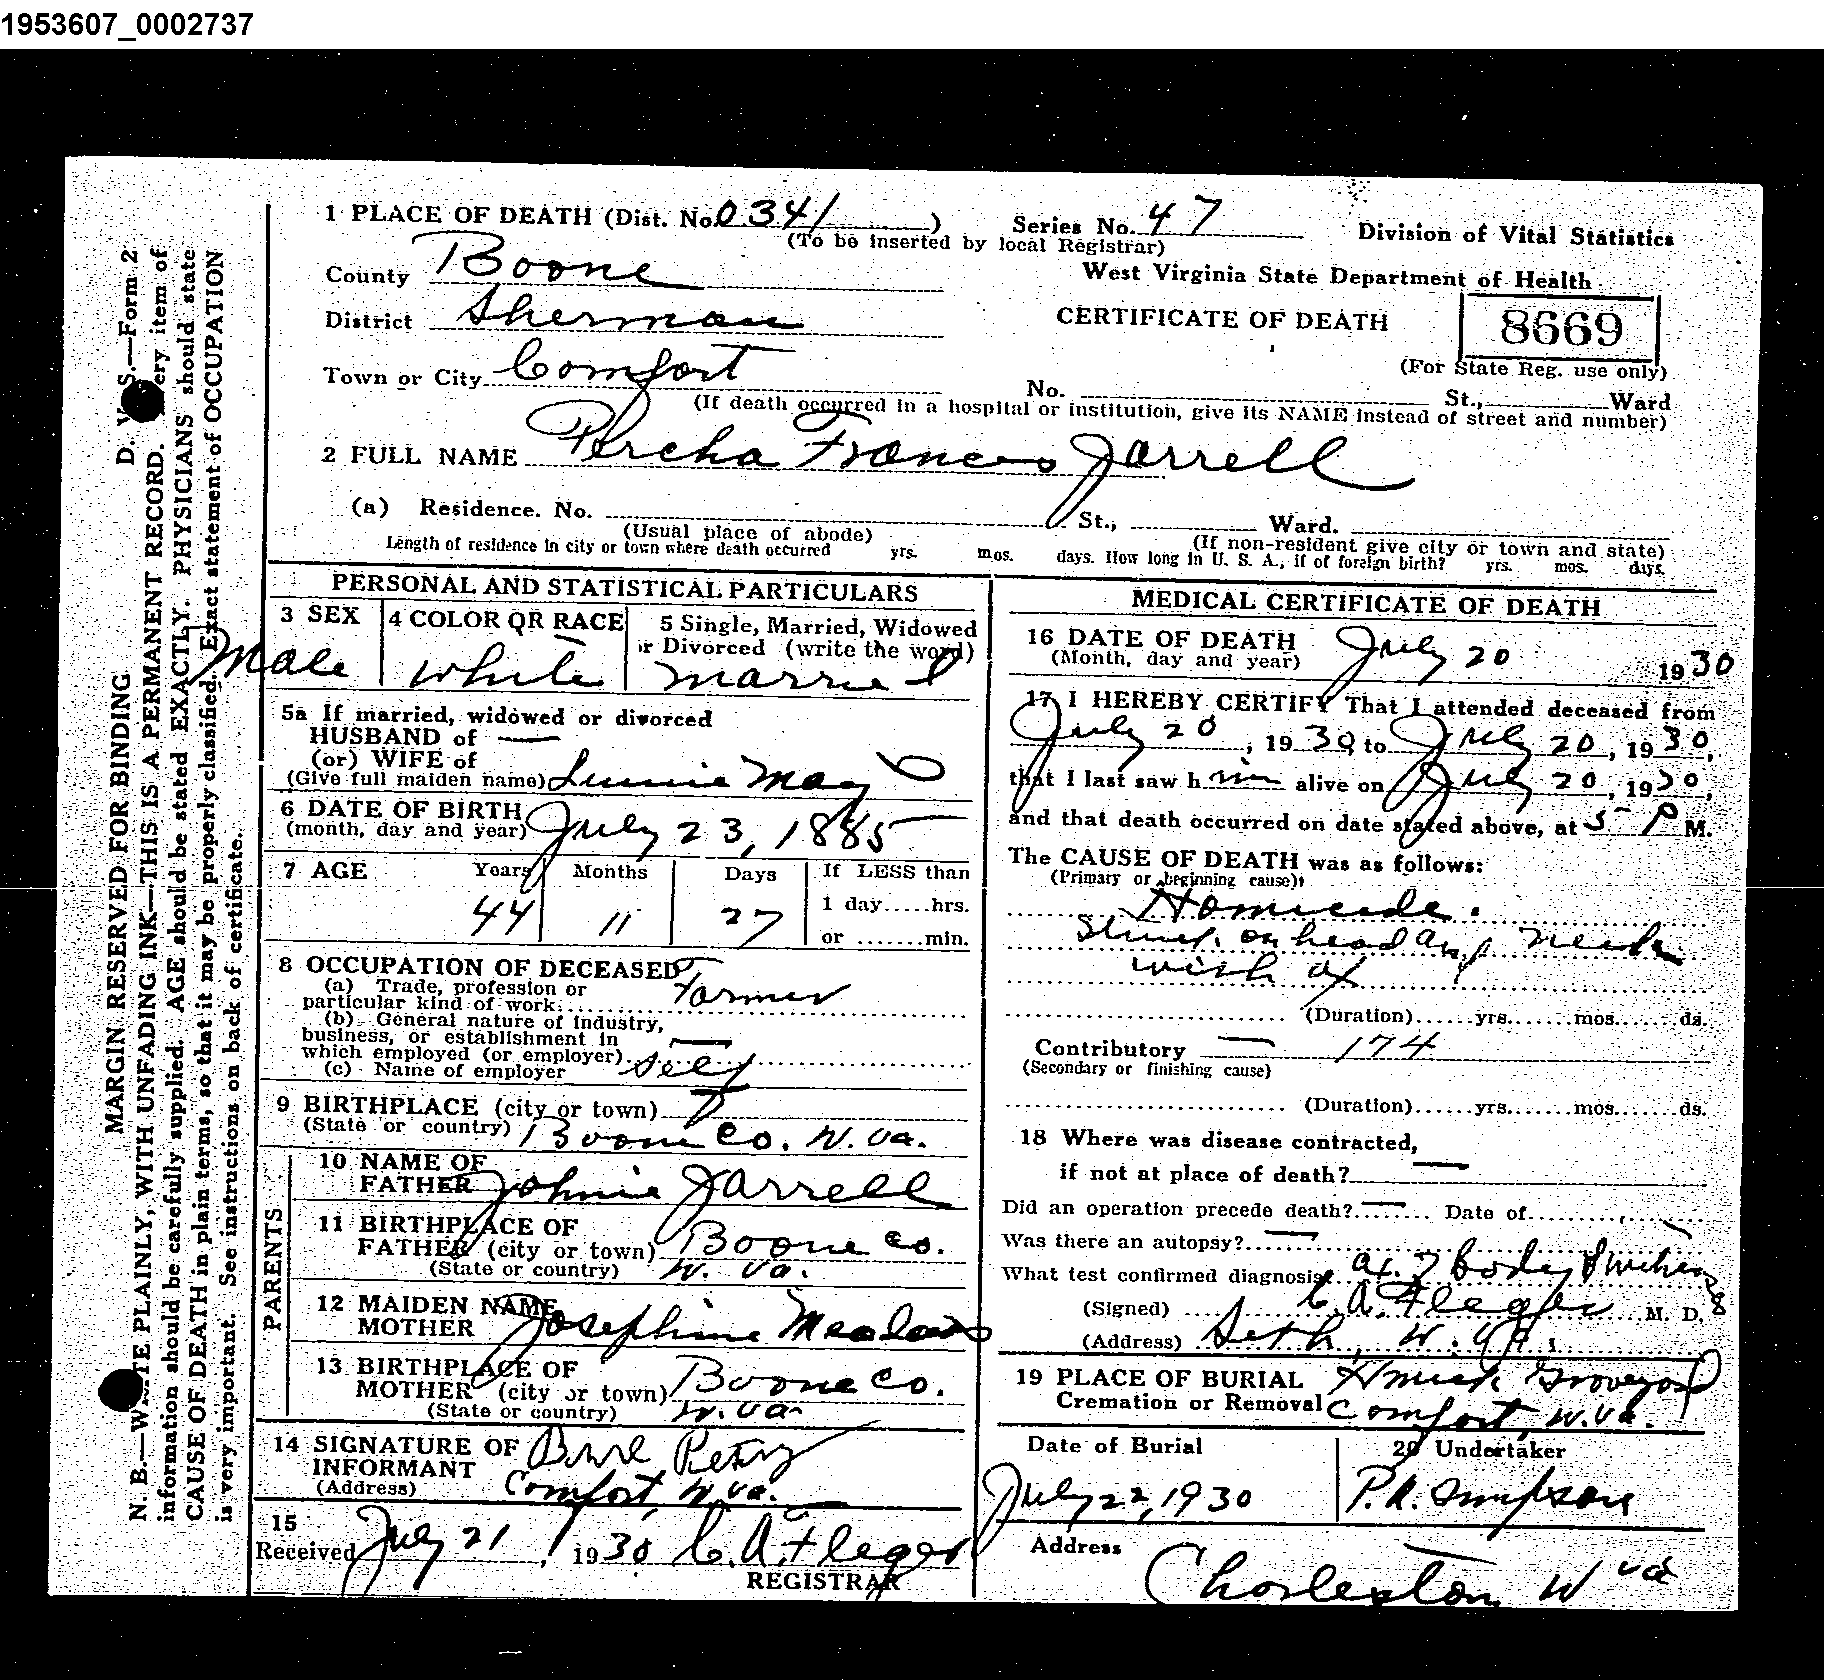 1953607_0002737
1 PLACE OF DEATH (Dist. No. 0341) Series No. 47 Division of Vital Statistics
(To be inserted by local Registrar)
West Virginia State Department of Health
County Boone
District Sherman CERTIFICATE OF DEATH 8669
(For State Reg. use only)
Town or City Comfort No. St., Ward
(If death occurred in a hospital or institution, give its NAME instead of street and number)
2 FULL NAME Percha Frances Jarrell
(a) Residence. No. St., Ward.
(Usual place of abode) (If non-resident give city or town and state)
Length of residence in city or town where death occurred yrs. mos. days. How long in U. S. A., if of foreign birth? yrs. mos. days.
PERSONAL AND STATISTICAL PARTICULARS
3 SEX 4 COLOR OR RACE 5 Single, Married, Widowed
or Divorced (write the word)
Male White Married
5a If married, widowed or divorced
HUSBAND of —
(or) WIFE of
(Give full maiden name) May
6 DATE OF BIRTH
(month, day and year) July 23, 1885
7 AGE Years Months Days If LESS than
1 day.....hrs.
44 11 27
or .......min.
8 OCCUPATION OF DECEASED
(a) Trade, profession or
particular kind of work. Farmer
(b) General nature of industry,
business, or establishment in
which employed (or employer)
(c) Name of employer Self
9 BIRTHPLACE (city or town)
(State or country) Boone Co. W. Va.
PARENTS
10 NAME OF
FATHER Johnie Jarrell
11 BIRTHPLACE OF
FATHER (city or town) Boone Co.
(State or country) W. Va.
12 MAIDEN NAME
MOTHER Josephine Meadows
13 BIRTHPLACE OF
MOTHER (city or town) Boone Co.
(State or country) W. Va
14 SIGNATURE OF
INFORMANT Petry
(Address) Comfort, W. Va.
15
Received July 21, 1930 C. A. Fleger
REGISTRAR
MEDICAL CERTIFICATE OF DEATH
16 DATE OF DEATH
(Month, day and year) July 20 1930
17 I HEREBY CERTIFY That I attended deceased from
July 20, 1930 to July 20, 1930,
that I last saw him alive on July 20, 1930,
and that death occurred on date stated above, at 5 P M.
The CAUSE OF DEATH was as follows:
(Primary or beginning cause)
Homicide.
Struck on head and neck
with ax
(Duration)......yrs.......mos.......ds.
Contributory — 174
(Secondary or finishing cause)
(Duration)......yrs.......mos.......ds.
18 Where was disease contracted,
if not at place of death? —
Did an operation precede death? — Date of
Was there an autopsy? —
What test confirmed diagnosis? body
(Signed) C. A. Fleger M. D.
(Address) Seth, W. Va.
19 PLACE OF BURIAL Graveyard
Cremation or Removal Comfort, W. Va.
Date of Burial 20 Undertaker
July 22, 1930 P. A. Simpson
Address
Charleston W Va
MARGIN RESERVED FOR BINDING D. V. S.—Form 2
N. B.—WRITE PLAINLY, WITH UNFADING INK—THIS IS A PERMANENT RECORD. Every item of
information should be carefully supplied. AGE should be stated EXACTLY. PHYSICIANS should state
CAUSE OF DEATH in plain terms, so that it may be properly classified. Exact statement of OCCUPATION
is very important. See instructions on back of certificate.